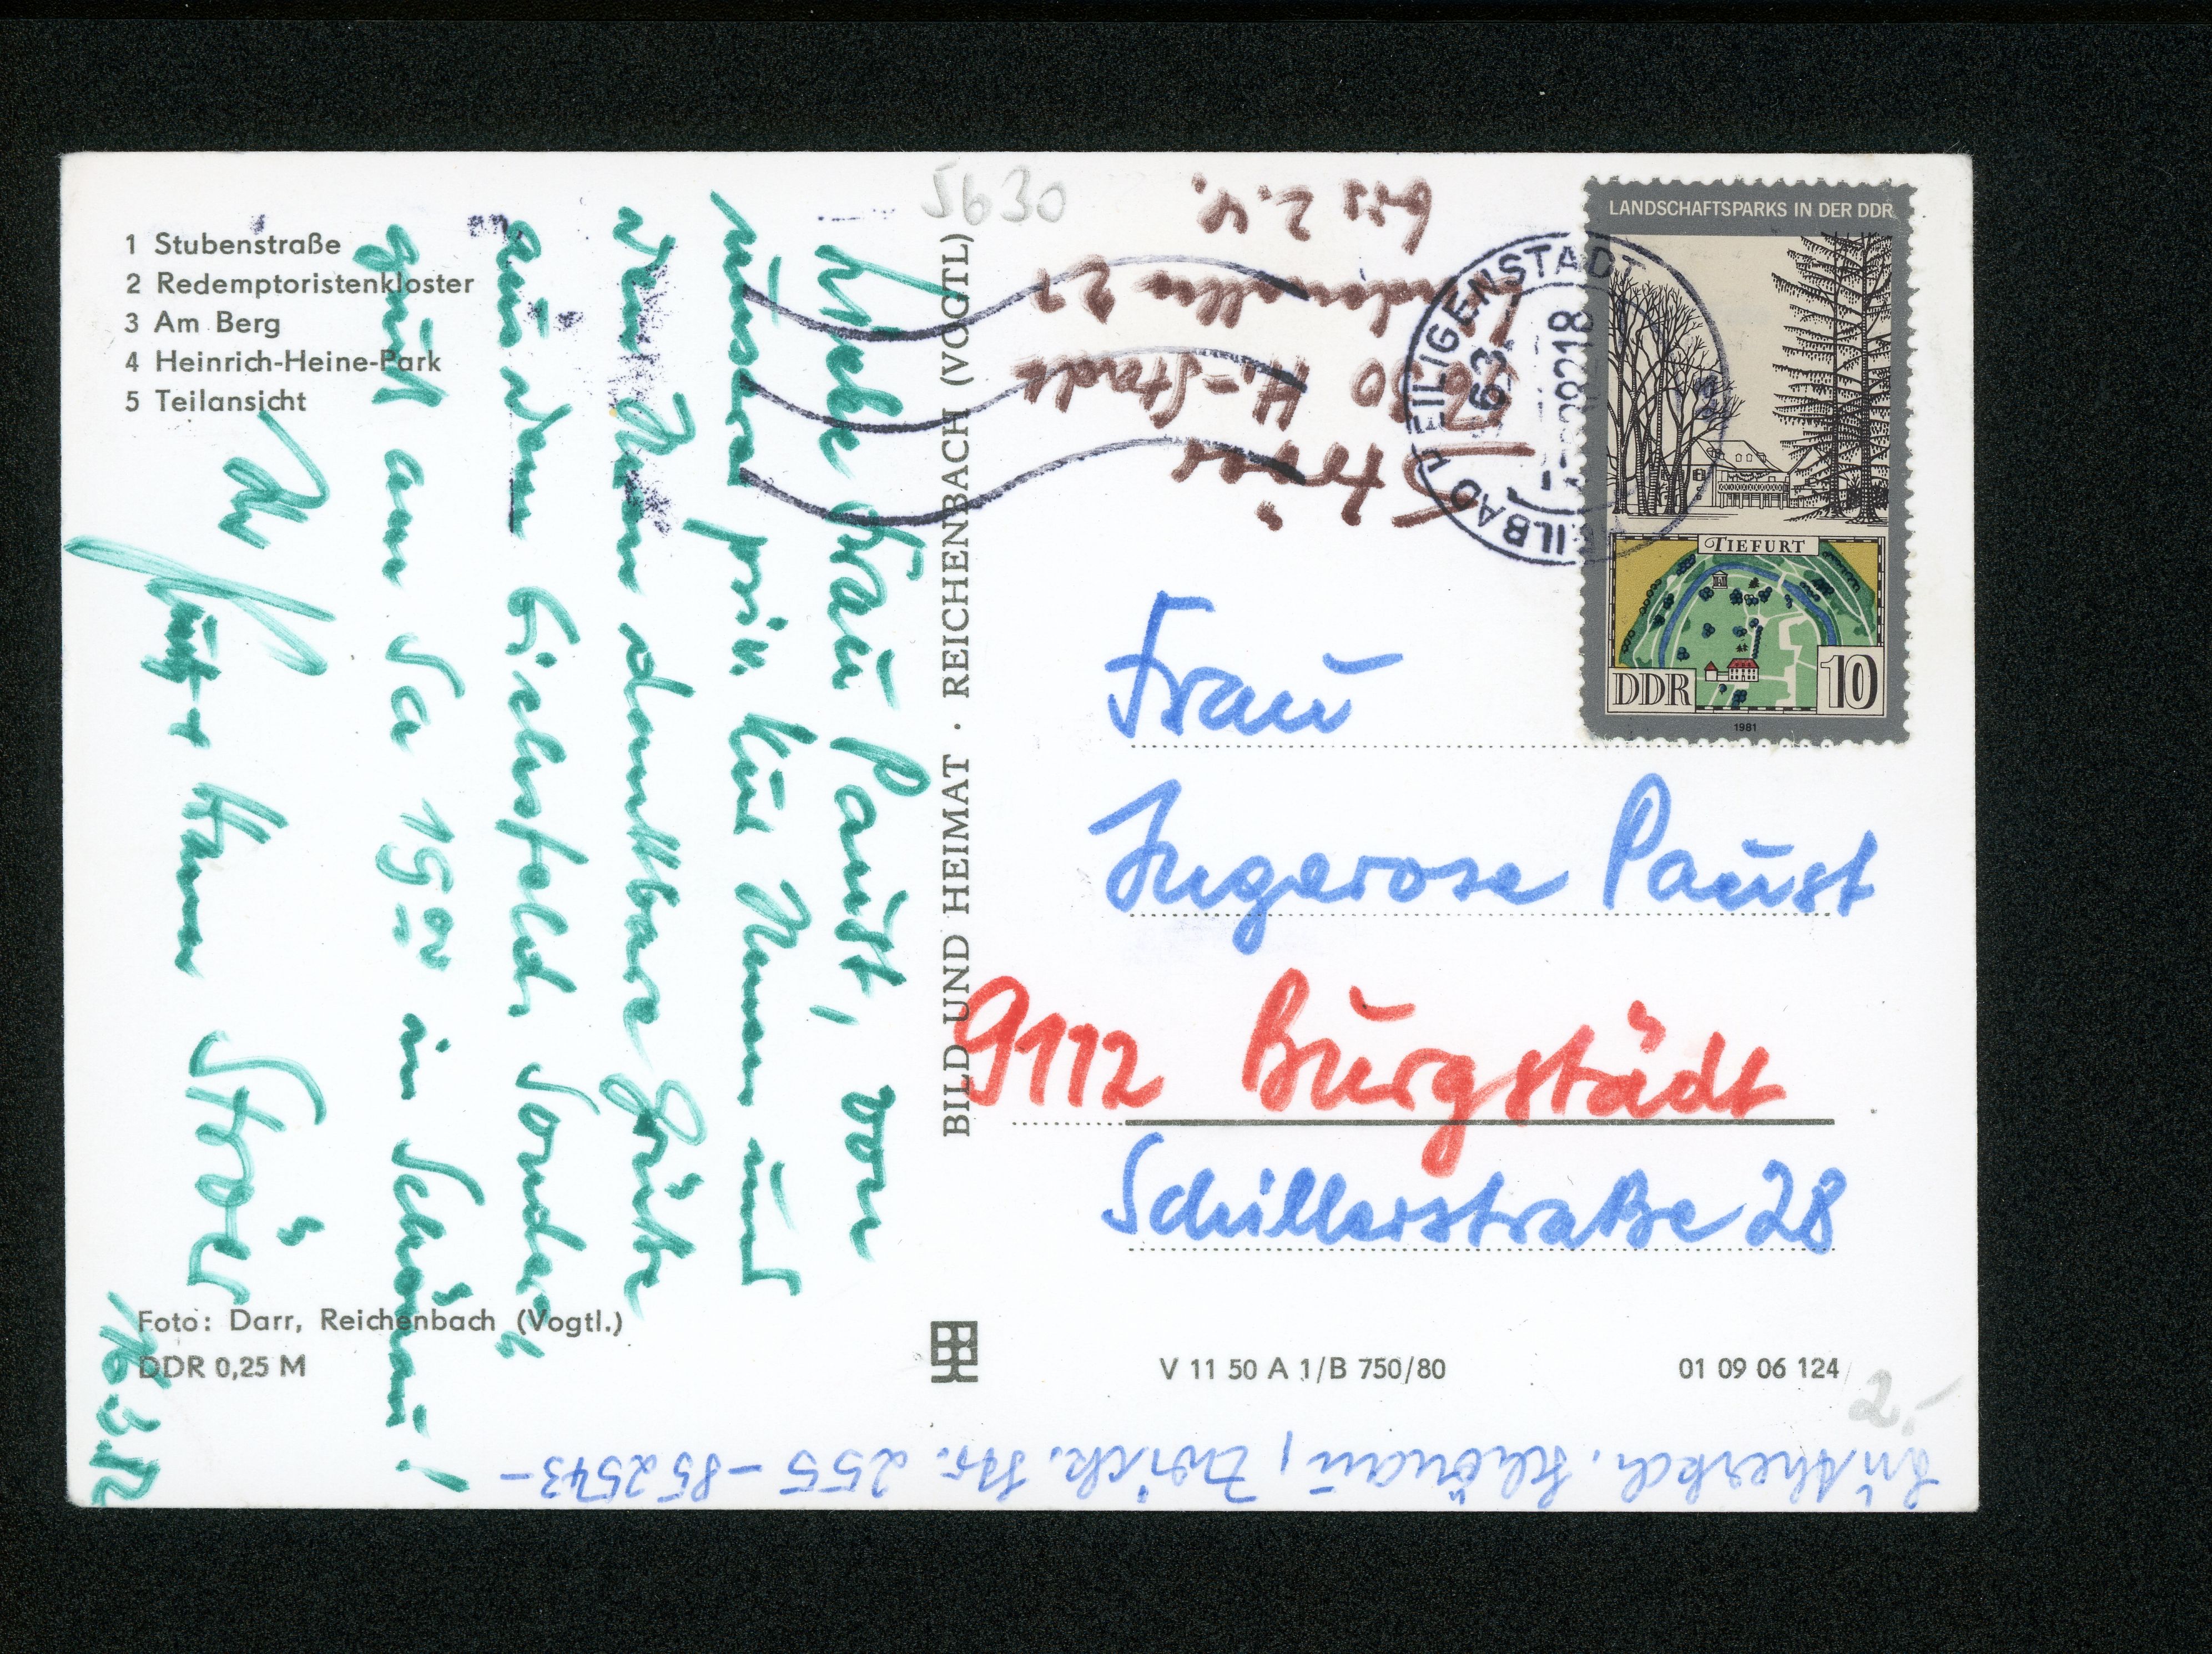 1 Stubenstraße
2 Redemptoristenkloster
3 Am Berg
4 Heinrich-Heine-Park
5 Teilansicht
Liebe Frau Paust, von
unserer priv. Kur Ihnen und
den Ihren dankbare Grüße
aus dem Eichsfeld. Sondern
am Sa 15 00 in Schönau!
Ihr
Hanna Ströer
16.3.82
Foto: Darr, Reichenbach (Vogtl.)
DDR 0,25 M
BILD UND HEIMAT · REICHENBACH (VOGTL)
5630
Ströer
5630 H.-Stadt
Lindenallee 27
bis 2.4.
HEILBAD HEILIGENSTADT
563
LANDSCHAFTSPARKS IN DER DDR
TIEFURT
DDR 10
1981
Frau
Ingerose Paust
9112 Burgstädt
Schillerstraße 28
V 11 50 A 1/B 750/80
01 09 06 124
2,-
Lutherkch. Schönau, Zwick. Str. 255 - 852543 -